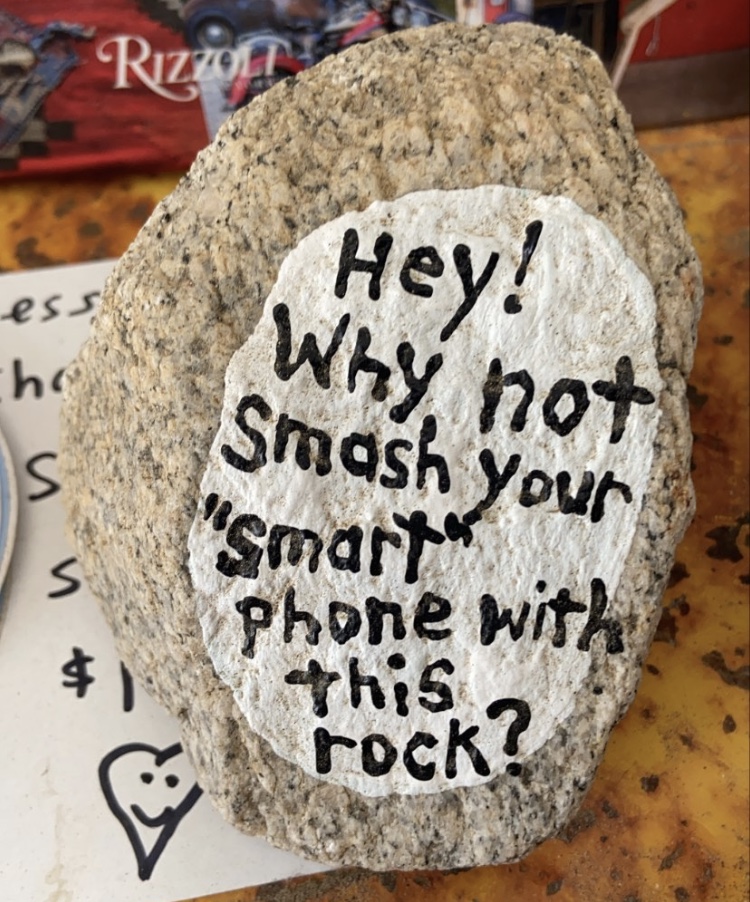 RIZZOLI
Hey!
Why not
Smash your
"smart"
phone with
this
rock?
$1